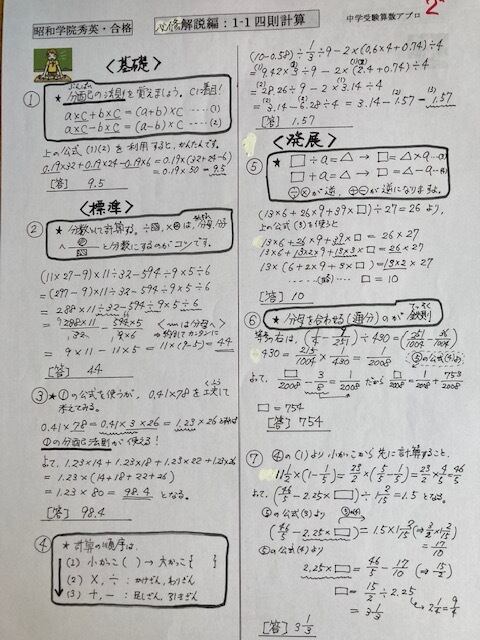 昭和学院秀英・合格
必修解説編：1-1四則計算
中学受験算数アプロ
2
〈基礎〉
①
★分配の法則を覚えましょう。C1番目!
a×C+b×C=(a+b)×C ……(1)
a×C-b×C=(a-b)×C ……(2)
上の公式(1)(2)を利用すると、かんたんです。
0.19×32+0.19×24-0.19×6=0.19×(32+24-6)
=0.19×50=9.5
[答] 9.5
〈標準〉
②
★分数にして計算する。
と分数にするのがコツです。
(11×27-9)×11÷32-594÷9×5÷6
=(297-9)×11÷32-594÷9×5÷6
=288×11÷32-594÷9×5÷6
=288×11/32-594×5/9×6
=9×11-11×5=11×(9-5)=44
[答] 44
③★①の公式を使うが、0.41×78を工夫して
考えてみる。
0.41×78=0.41×3×26=1.23×26と
①の分配法則が使える!
よって、1.23×14+1.23×18+1.23×22+1.23×26
=1.23×(14+18+22+26)
=1.23×80=98.4 となる。
[答] 98.4
④
★計算の順序は、
(1) 小かっこ( )→大かっこ{ }
(2) ×,÷：かけざん,わりざん
(3) +,-：足しざん,引きざん
(10-0.58)÷1/3÷9-2×(0.6×4+0.74)÷4
=9.42×3÷9-2×(2.4+0.74)÷4
=28.26÷9-2×3.14÷4
=3.14-6.28÷4=3.14-1.57=1.57
[答] 1.57
〈発展〉
⑤
★□÷a=△→□=△×a…(3)
□+a=△→□=△-a…(4)
÷×が逆,+-が逆になりますよ。
(13×6+26×9+39×□)÷27=26 より、
上の公式(3)を使うと
13×6+26×9+39×□=26×27
13×6+13×2×9+13×3×□=26×27
13×(6+2×9+3×□)=13×2×27
……(略)…… □=10
[答] 10
⑥
★分母を合わせる(通分)のが鉄則
等号の右は、(1/4-9/251)÷430=(251/1004-36/1004)
÷430=215/1004×1/430=1/2008
⑤の公式(4)より
よって、□/2008-3/8=1/2008 だから □/2008=1/2008+753/2008
□=754
[答] 754
⑦ ④の(1)より小かっこから先に計算すること。
11 1/2×(1-1/5)=23/2×(5/5-1/5)=23/2×4/5=46/5
よって、(46/5-2.25×□)÷1 2/15=1.5となる。
⑤の公式(3)より
(46/5-2.25×□)=1.5×1 2/15(⇒3/2×1 2/15)
=17/10
⑤の公式(4)より
2.25×□=46/5-17/10(⇒15/2)
□=15/2÷2.25→2 1/4=9/4
=3 1/3
[答] 3 1/3